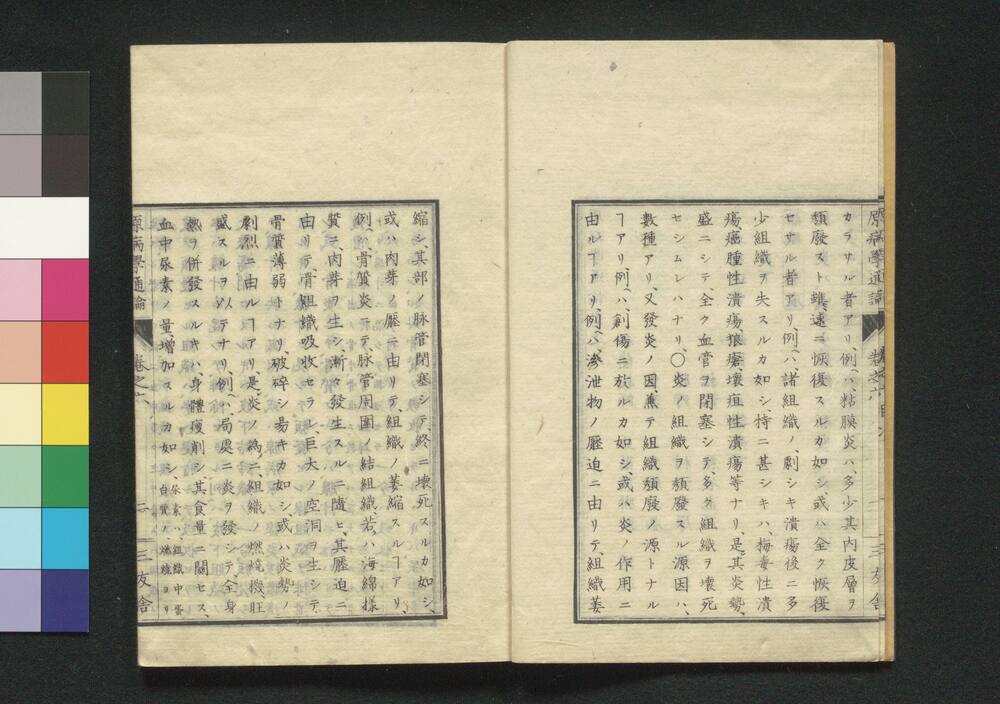 原病學通論
カラサル者アリ、例ヘハ粘膜炎ハ、多少其内皮層ヲ
頽廢スト雖、速ニ恢復スルカ如シ、或ハ全ク恢復
セサル者アリ、例ヘハ諸組織ノ、劇シキ潰瘍後ニ多
少組織ヲ失スルカ如シ、特ニ甚シキハ、梅毒性潰
瘍、癌腫性潰瘍、狼瘡壞疽性潰瘍等ナリ、是其炎勢、
盛ニシテ、全ク血管ヲ閉塞シテ、多ク組織ヲ壞死
セシムレハナリ〇炎ノ組織ヲ頽廢スル源因ハ、
數種アリ、又發炎ノ因、兼テ組織頽廢ノ源トナル
ヿアリ、例ヘハ、創傷ニ於ルカ如シ、或ハ炎ノ作用ニ
由ルヿアリ、例ヘハ滲泄物ノ壓迫ニ由リテ、組織萎
縮シ、其部ノ脉管閉塞シテ、終ニ壞死スルカ如シ、
或ハ肉芽ノ壓ニ由リテ、組織ノ萎縮スルヿアリ、
例ヘハ、骨質炎ニテ、脉管周圍ノ結組織、若クハ海綿樣
質ニ、肉芽ヲ生シ、漸ク發生スルニ隨ヒ、其壓迫ニ
由リテ、骨組織吸收セラレ、巨大ノ空洞ヲ生シテ、
骨質薄弱トナリ、破碎シ易キカ如シ、或ハ炎勢ノ
劇烈ニ由ルヿアリ、是炎ノ爲ニ、組織ノ燃燒機、旺
盛スルヲ以テナリ、例ヘハ、局處ニ炎ヲ發シテ、全身
熱ヲ併發スルキハ、身體瘦削シ、其食量ニ關セス、
血中尿素ノ量、增加スルカ如シ、尿素ハ、組織中蛋
白質ノ燃燒ヨリ
原病學通論 卷之六 二 三友舍